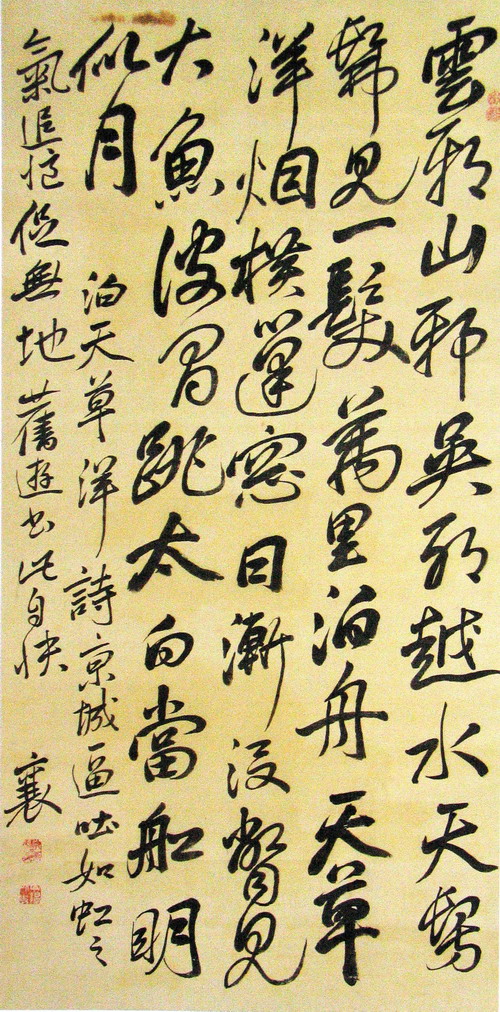 雲邪山邪吳邪越水天髣
髴見一髮萬里泊舟天草
洋烟橫篷窓日漸没瞥見
大魚波間跳太白當船明
似月
泊天草洋詩京城逼如虹之
氣追無地舊遊書此自快
襄